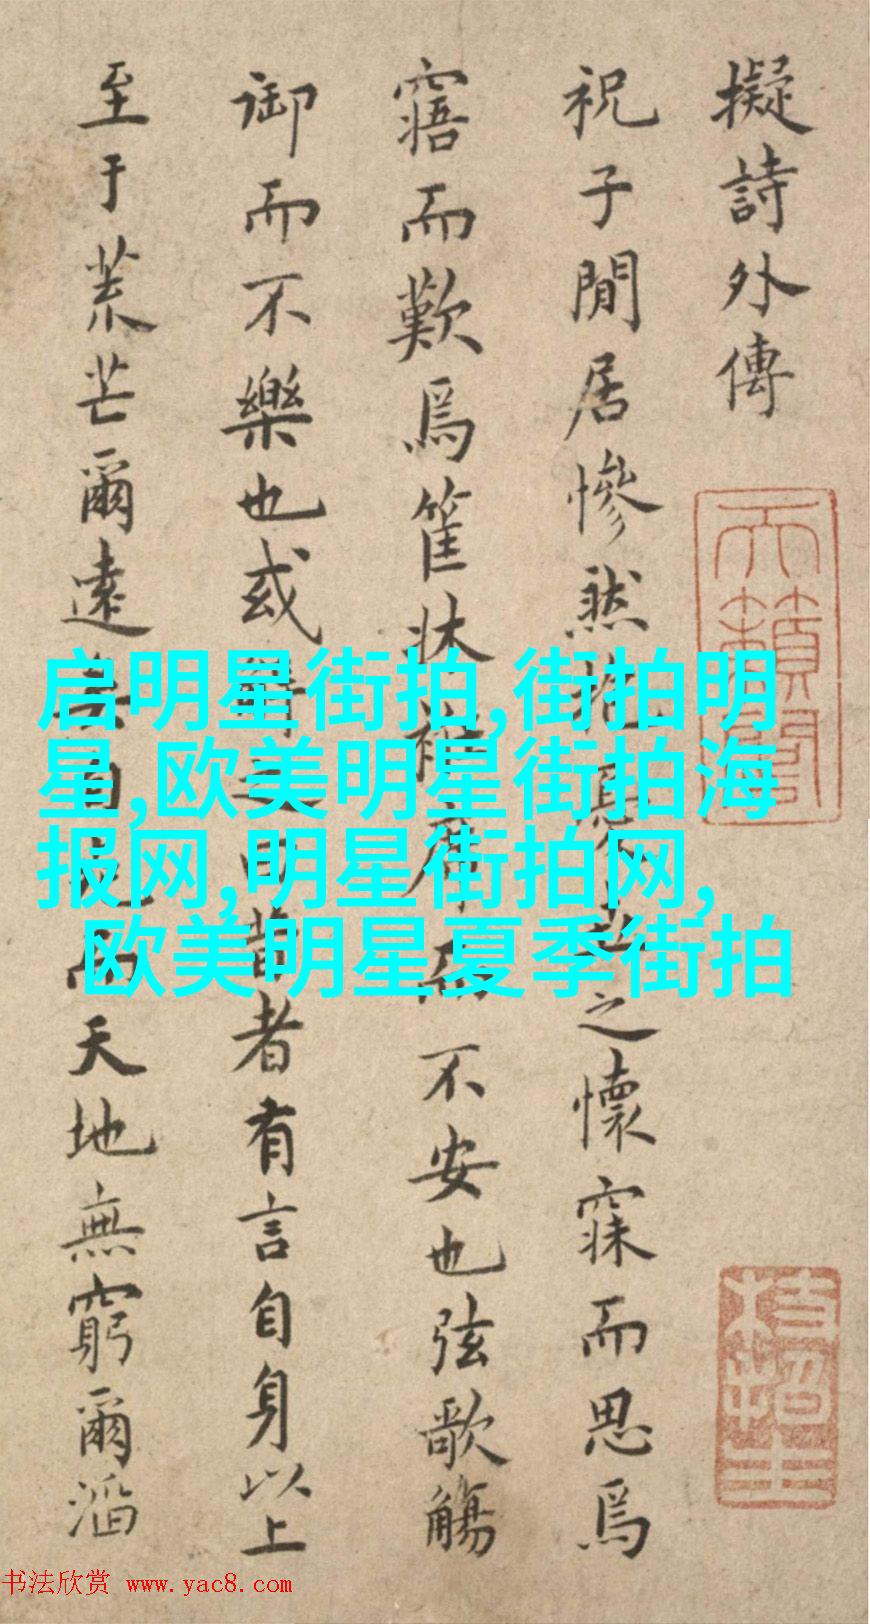 擬詩外傳
天籟閣
枝指生
祝子閒居慘然抱之懷寐而思焉
寤而歎焉筐牀衽席而不安也弦歌觴
御而不樂也或曰昔者有言自身以上
至于荒芒爾遠而天地無窮爾滔
启明星街拍,街拍明
星,欧美明星街拍海
报网,明星街拍网,
欧美明星夏季街拍
书法欣赏 www.yac8.com